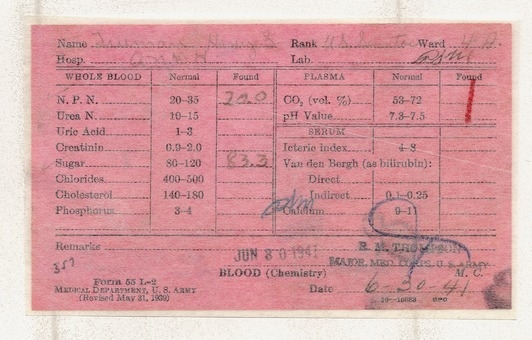 Name Truman, Harry S. Rank U.S. Senator Ward
Hosp. Lab.
WHOLE BLOOD Normal Found PLASMA Normal Found
N. P. N. 20-35 CO₂ (vol. %) 53-72
Urea N. 10-15 pH Value 7.3-7.5
Uric Acid 1-3 SERUM
Creatinin 0.9-2.0 Icteric index 4-8
Sugar 80-120 83.3 Van den Bergh (as bilirubin):
Chlorides 400-500 Direct
Cholesterol 140-180 Indirect 0.1-0.25
Phosphorus 3-4 Calcium 9-11
Remarks JUN 30 1941 R. M. THOMPSON
357 MAJOR, MED. CORPS, U.S. ARMY
BLOOD (Chemistry) M. C.
Form 55 L-2 Date 6-30-41
MEDICAL DEPARTMENT, U. S. ARMY
(Revised May 31, 1939) GPO